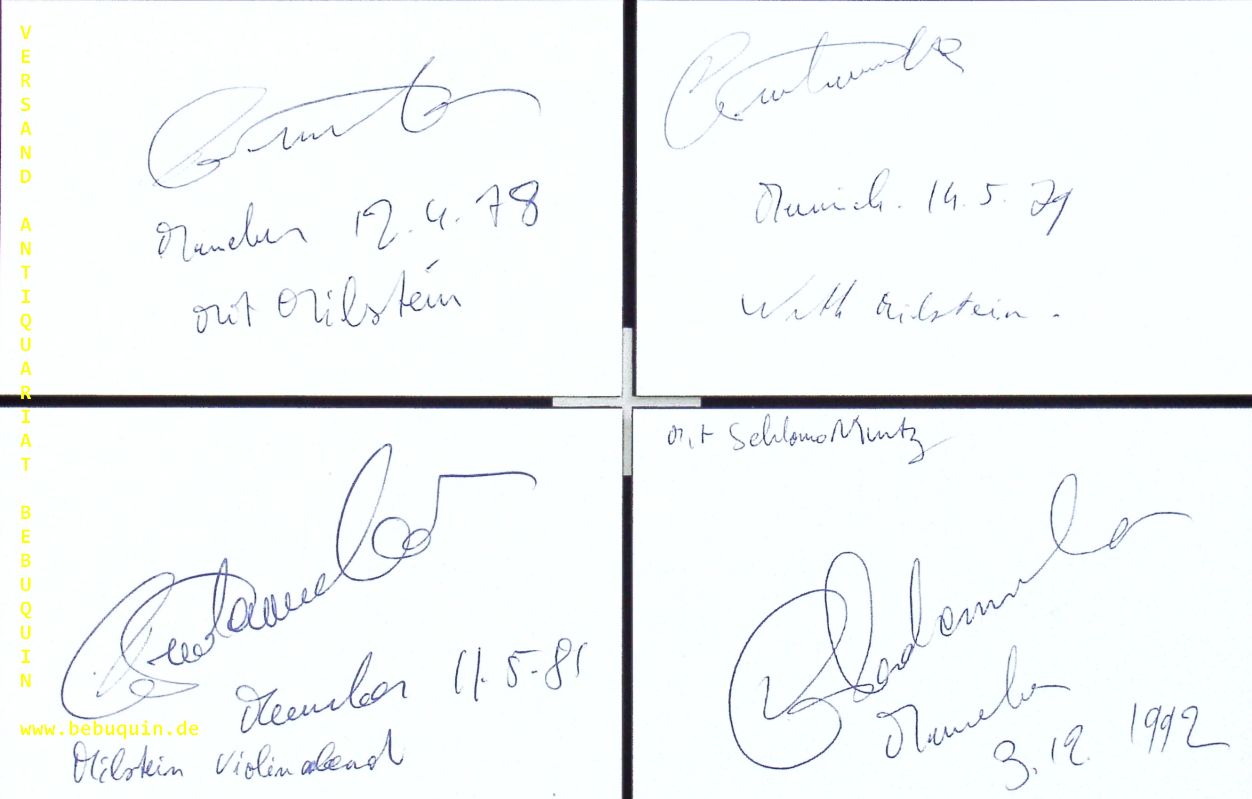 München 12.4.78
mit Milstein
Munich. 14.5.79
With Milstein.
München 11.5.81
Milstein Violinabend
mit Schlomo Mintz
München
3.12.1992
VERSAND ANTIQUARIAT BEBUQUIN
www.bebuquin.de